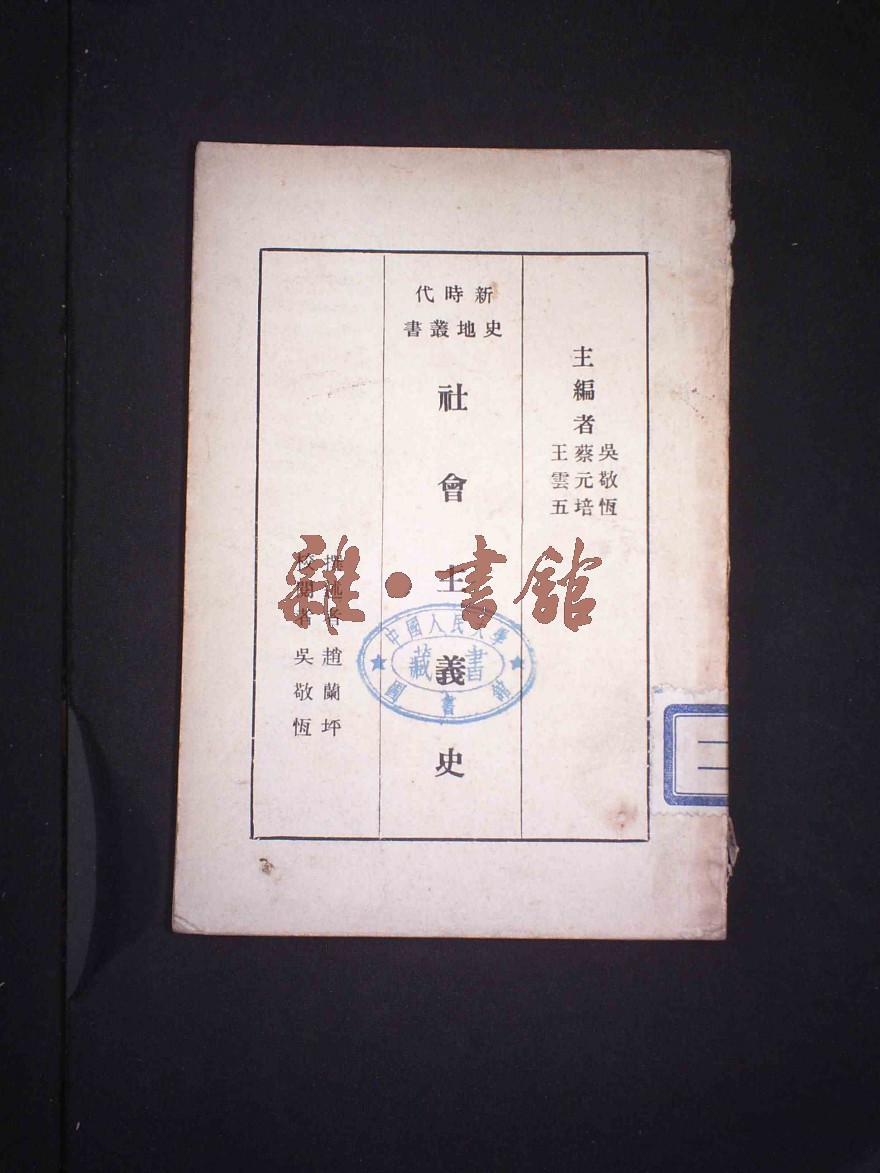 主編者
吳敬恆
蔡元培
王雲五
新時代
史地叢書
社會主義史
撰述者 趙蘭坪
校閱者 吳敬恆
雜·書館
中國人民大學
藏書
圖書館